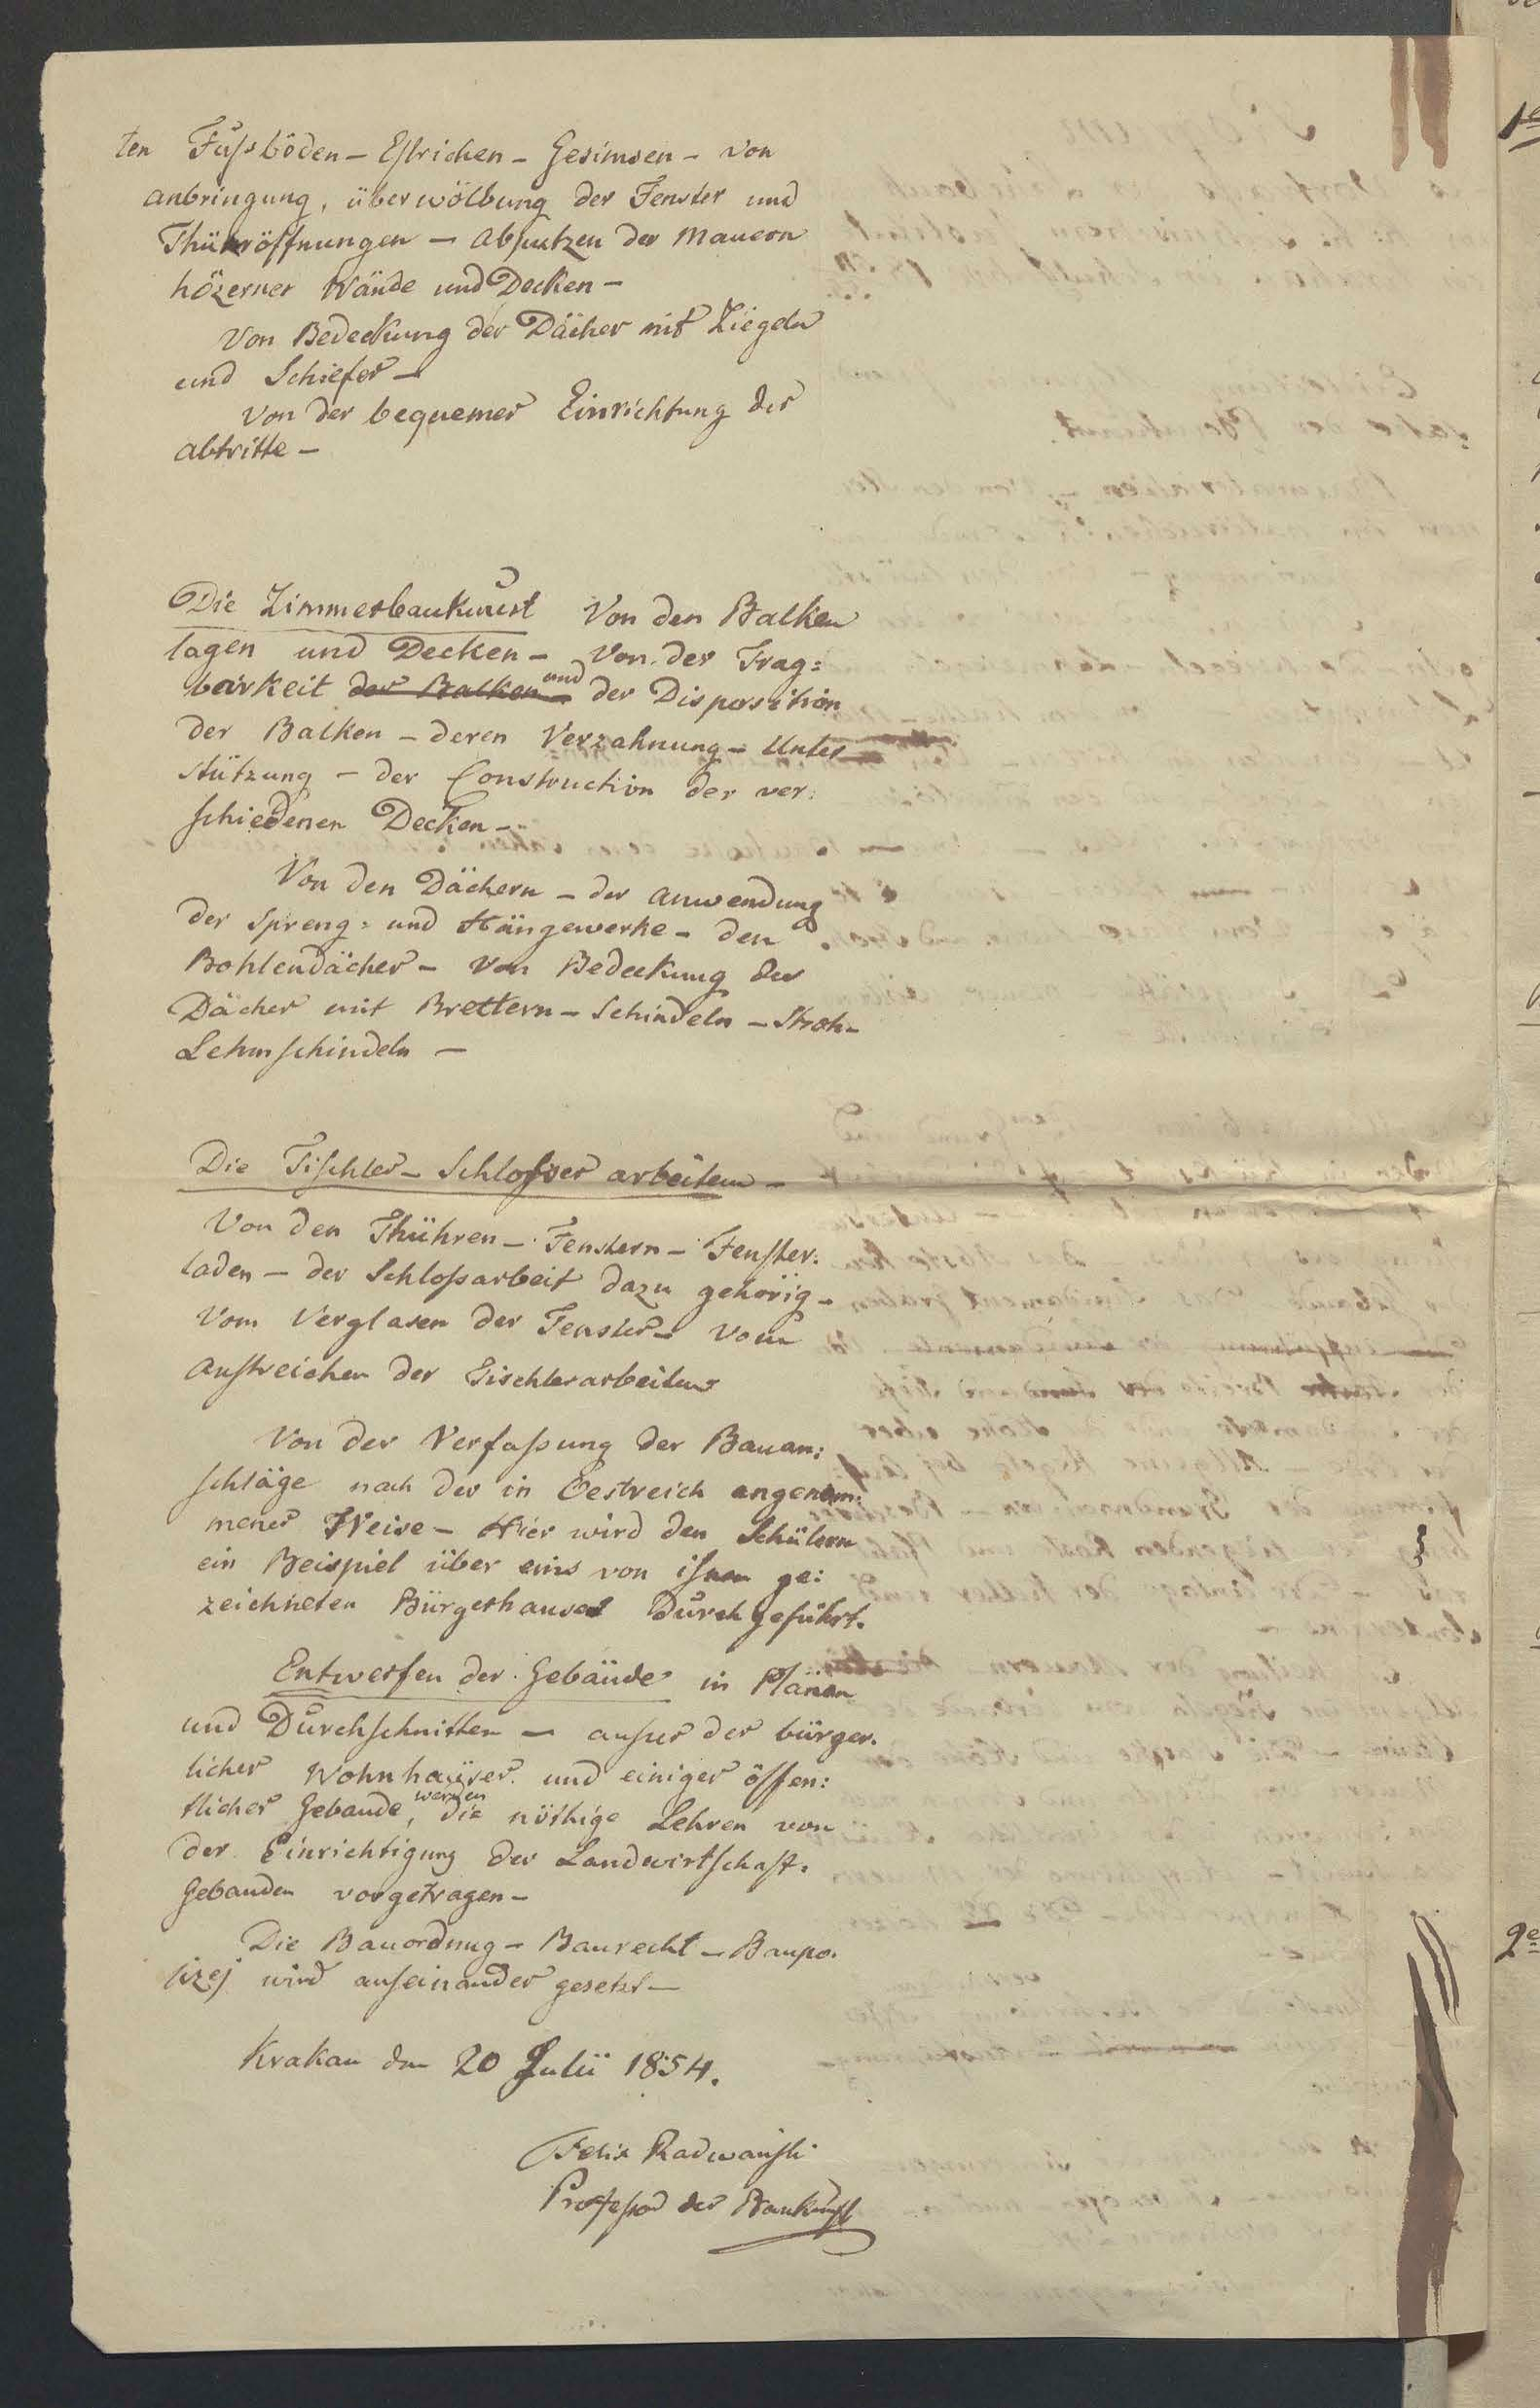 ten Fußböden – Estrichen – Gesimsen – von
anbringung, überwölbung der Fenster und
Thüröffnungen – Abputzen der Mauern
hözerner Wände und Decken –
Von Bedeckung der Dächer mit Ziegeln
und Schiefer –
Von der bequemer Einrichtung der
abtritte –
Die Zimmerbaukunst Von den Balken
lagen und Decken – Von der Trag=
barkeit der Balken und der Disposition
der Balken – deren Verzahnung – Unter
stützung – der Construction der ver=
schiedenen Decken –
Von den Dächern – der anwendung
der Spreng= und Hängewerke – den
Bohlendächer – Von Bedeckung der
Dächer mit Brettern – Schindeln – Stroh –
Lehmschindeln –
Die Tischler – Schlosser arbeiten –
Von den Thühren – Fenstern – Fenster=
laden – der Schloßarbeit dazu gehörig –
Vom Verglasen der Fenster – vom
Anstreichen der Tischlerarbeiten
Von der Verfaßung der Bauan=
schläge nach der in Oestreich angenom=
mener Weise – Hier wird den Schülern
ein Beispiel über eins von ihnen ge=
zeichneten Bürgerhauses durchgeführt.
Entwerfen der Gebäude in Plänen
und Durchschnitten – außer der bürger=
licher Wohnhaüser und einiger öffen=
tlicher Gebaude, werden die nöthige Lehren von
der Einrichtigung der Landwirtschaft=
Gebauden vorgetragen –
Die Bauordnug – Baurecht – Baupo=
lizej wird auseinander gesetzt –
Krakau den 20 Julii 1854.
Felix Radwański
Professor der Baukunst
1e
2e